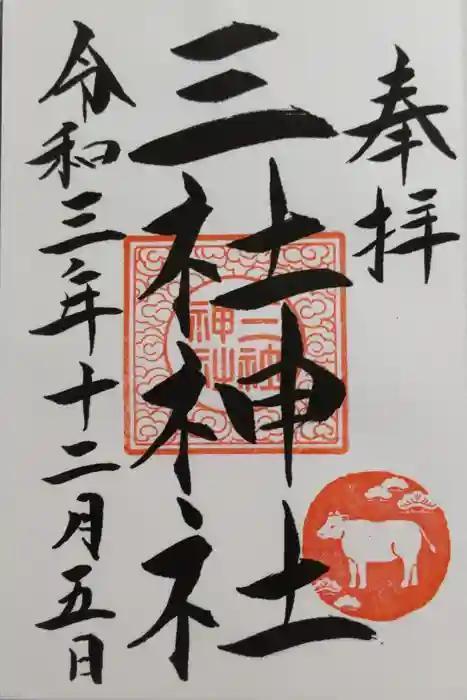 奉拝
三社神社
令和三年十二月五日
三社
神社